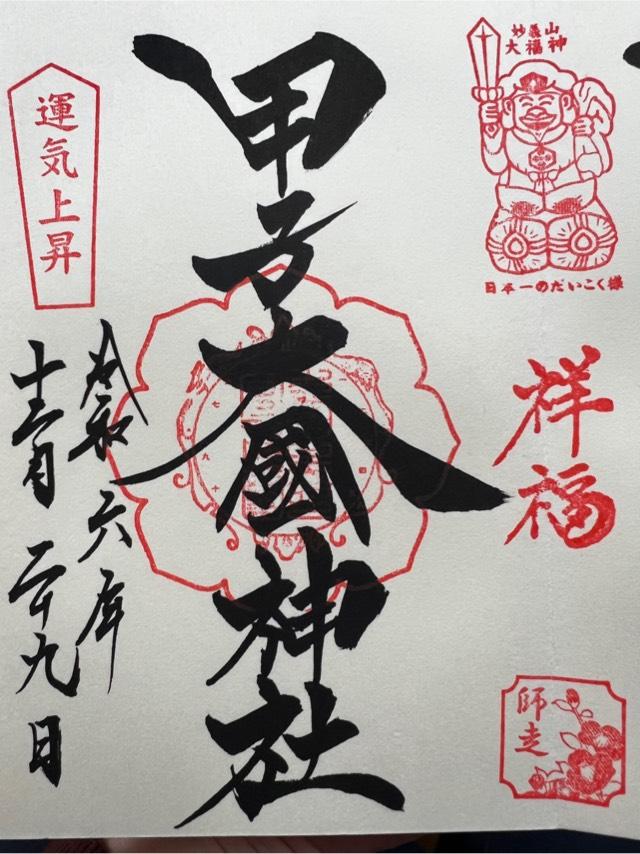 妙義山
大福神
日本一のだいこく様
祥福
師走
甲子大國神社
運気上昇
令和六年
十二月二十九日